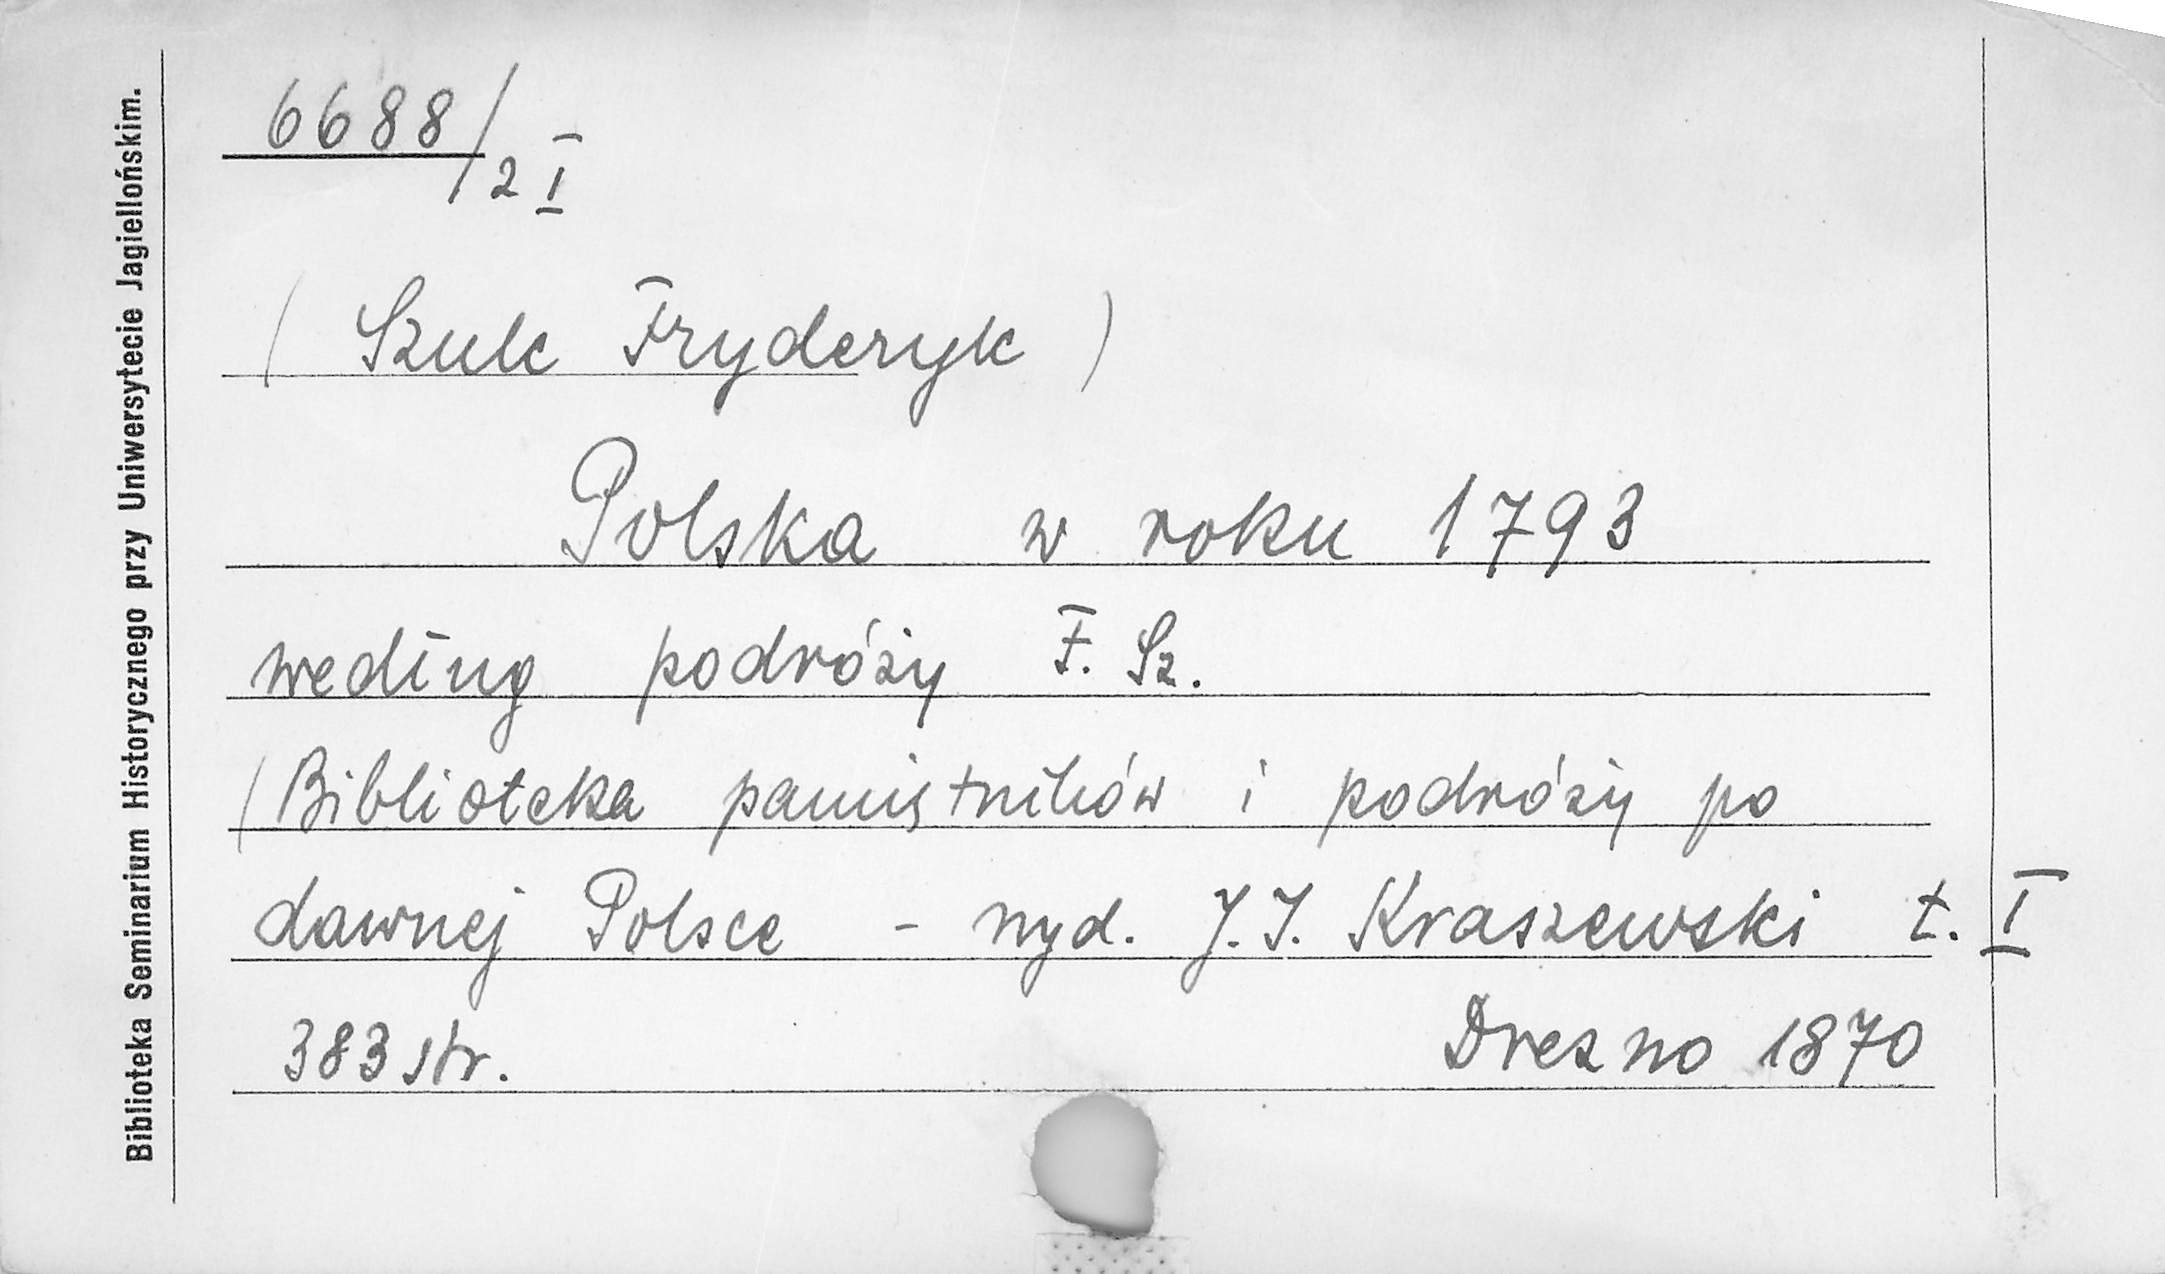 Biblioteka Seminarium Historycznego przy Uniwersytecie Jagiellońskim.
6688/2 I
( Szulc Fryderyk )
Polska w roku 1793
według podróży F. Sz.
(Biblioteka pamiętników i podróży po
dawnej Polsce - wyd. J. I. Kraszewski t. I
383 str. Drezno 1870